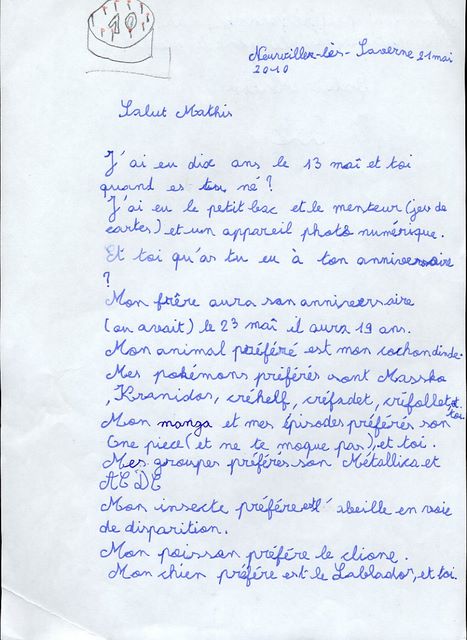 10
Neuwiller-lès-Saverne 21 mai
2010
Salut Mathis
J'ai eu dix ans le 13 maî et toi
quand es tu né ?
J'ai eu le petit bac et le menteur (jeu de
cartes) et un appareil photo numérique.
Et toi qu'as tu eu à ton anniversaire
?
Mon frêre aura son anniversaire
(ou avait) le 23 maî il aura 19 ans.
Mon animal préféré est mon cochondinde.
Mes pokémons préférés sont Massko
, Kranidos, créhelf, créfadet, créfollet, et toi.
Mon manga et mes épisodes préférés son
One piece (et ne te moque pas), et toi.
Mes groupes préférés son Métallica et
ACDC
Mon insecte préfére est l'abeille en voie
de disparition.
Mon poisson préfére le clione.
Mon chien préfére est le Lablador, et toi.